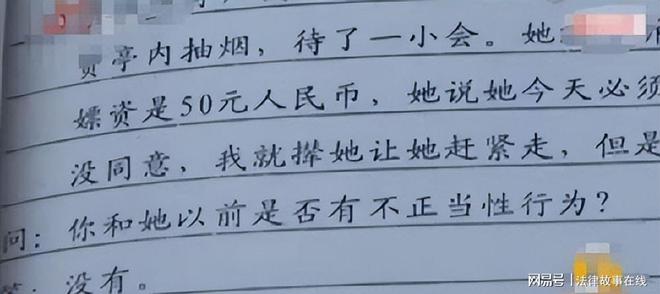 亭内抽烟，待了一小会。她
嫖资是50元人民币，她说她今天必须
没同意，我就撵她让她赶紧走，但是
问：你和她以前是否有不正当性行为？
答：没有。
网易号 | 法律故事在线